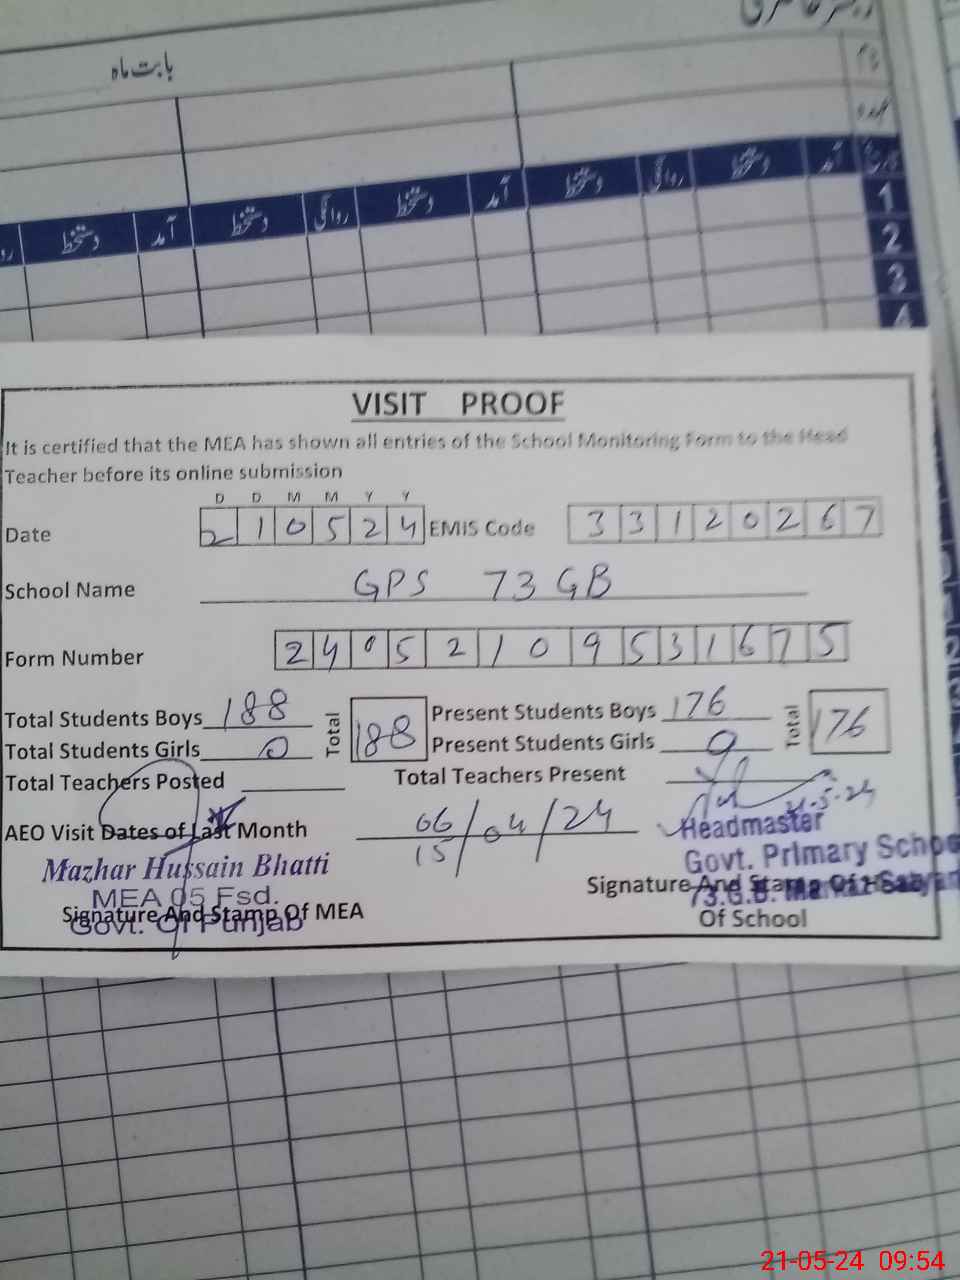 بابت ماہ
نام
عہدہ
آمد دستخط روانگی دستخط آمد دستخط روانگی دستخط آمد دستخط
1
2
3
4
VISIT PROOF
It is certified that the MEA has shown all entries of the School Monitoring Form to the Head
Teacher before its online submission
D D M M Y Y
Date 2 1 0 5 2 4 EMIS Code 3 3 1 2 0 2 6 7
School Name GPS 73 GB
Form Number 2 4 0 5 2 1 0 9 5 3 1 6 7 5
Total Students Boys 188 Total 188 Present Students Boys 176 Total 176
Total Students Girls 0 Present Students Girls 0
Total Teachers Posted Total Teachers Present
21-5-24
AEO Visit Dates of Last Month 06/15/04/24
Headmaster
Mazhar Hussain Bhatti
Govt. Primary Schoo
MEA 05 Fsd.
Signature And Stamp Of
73.G.B.
Signature And Stamp Of MEA
Govt. Of Punjab
Of School
21-05-24 09:54